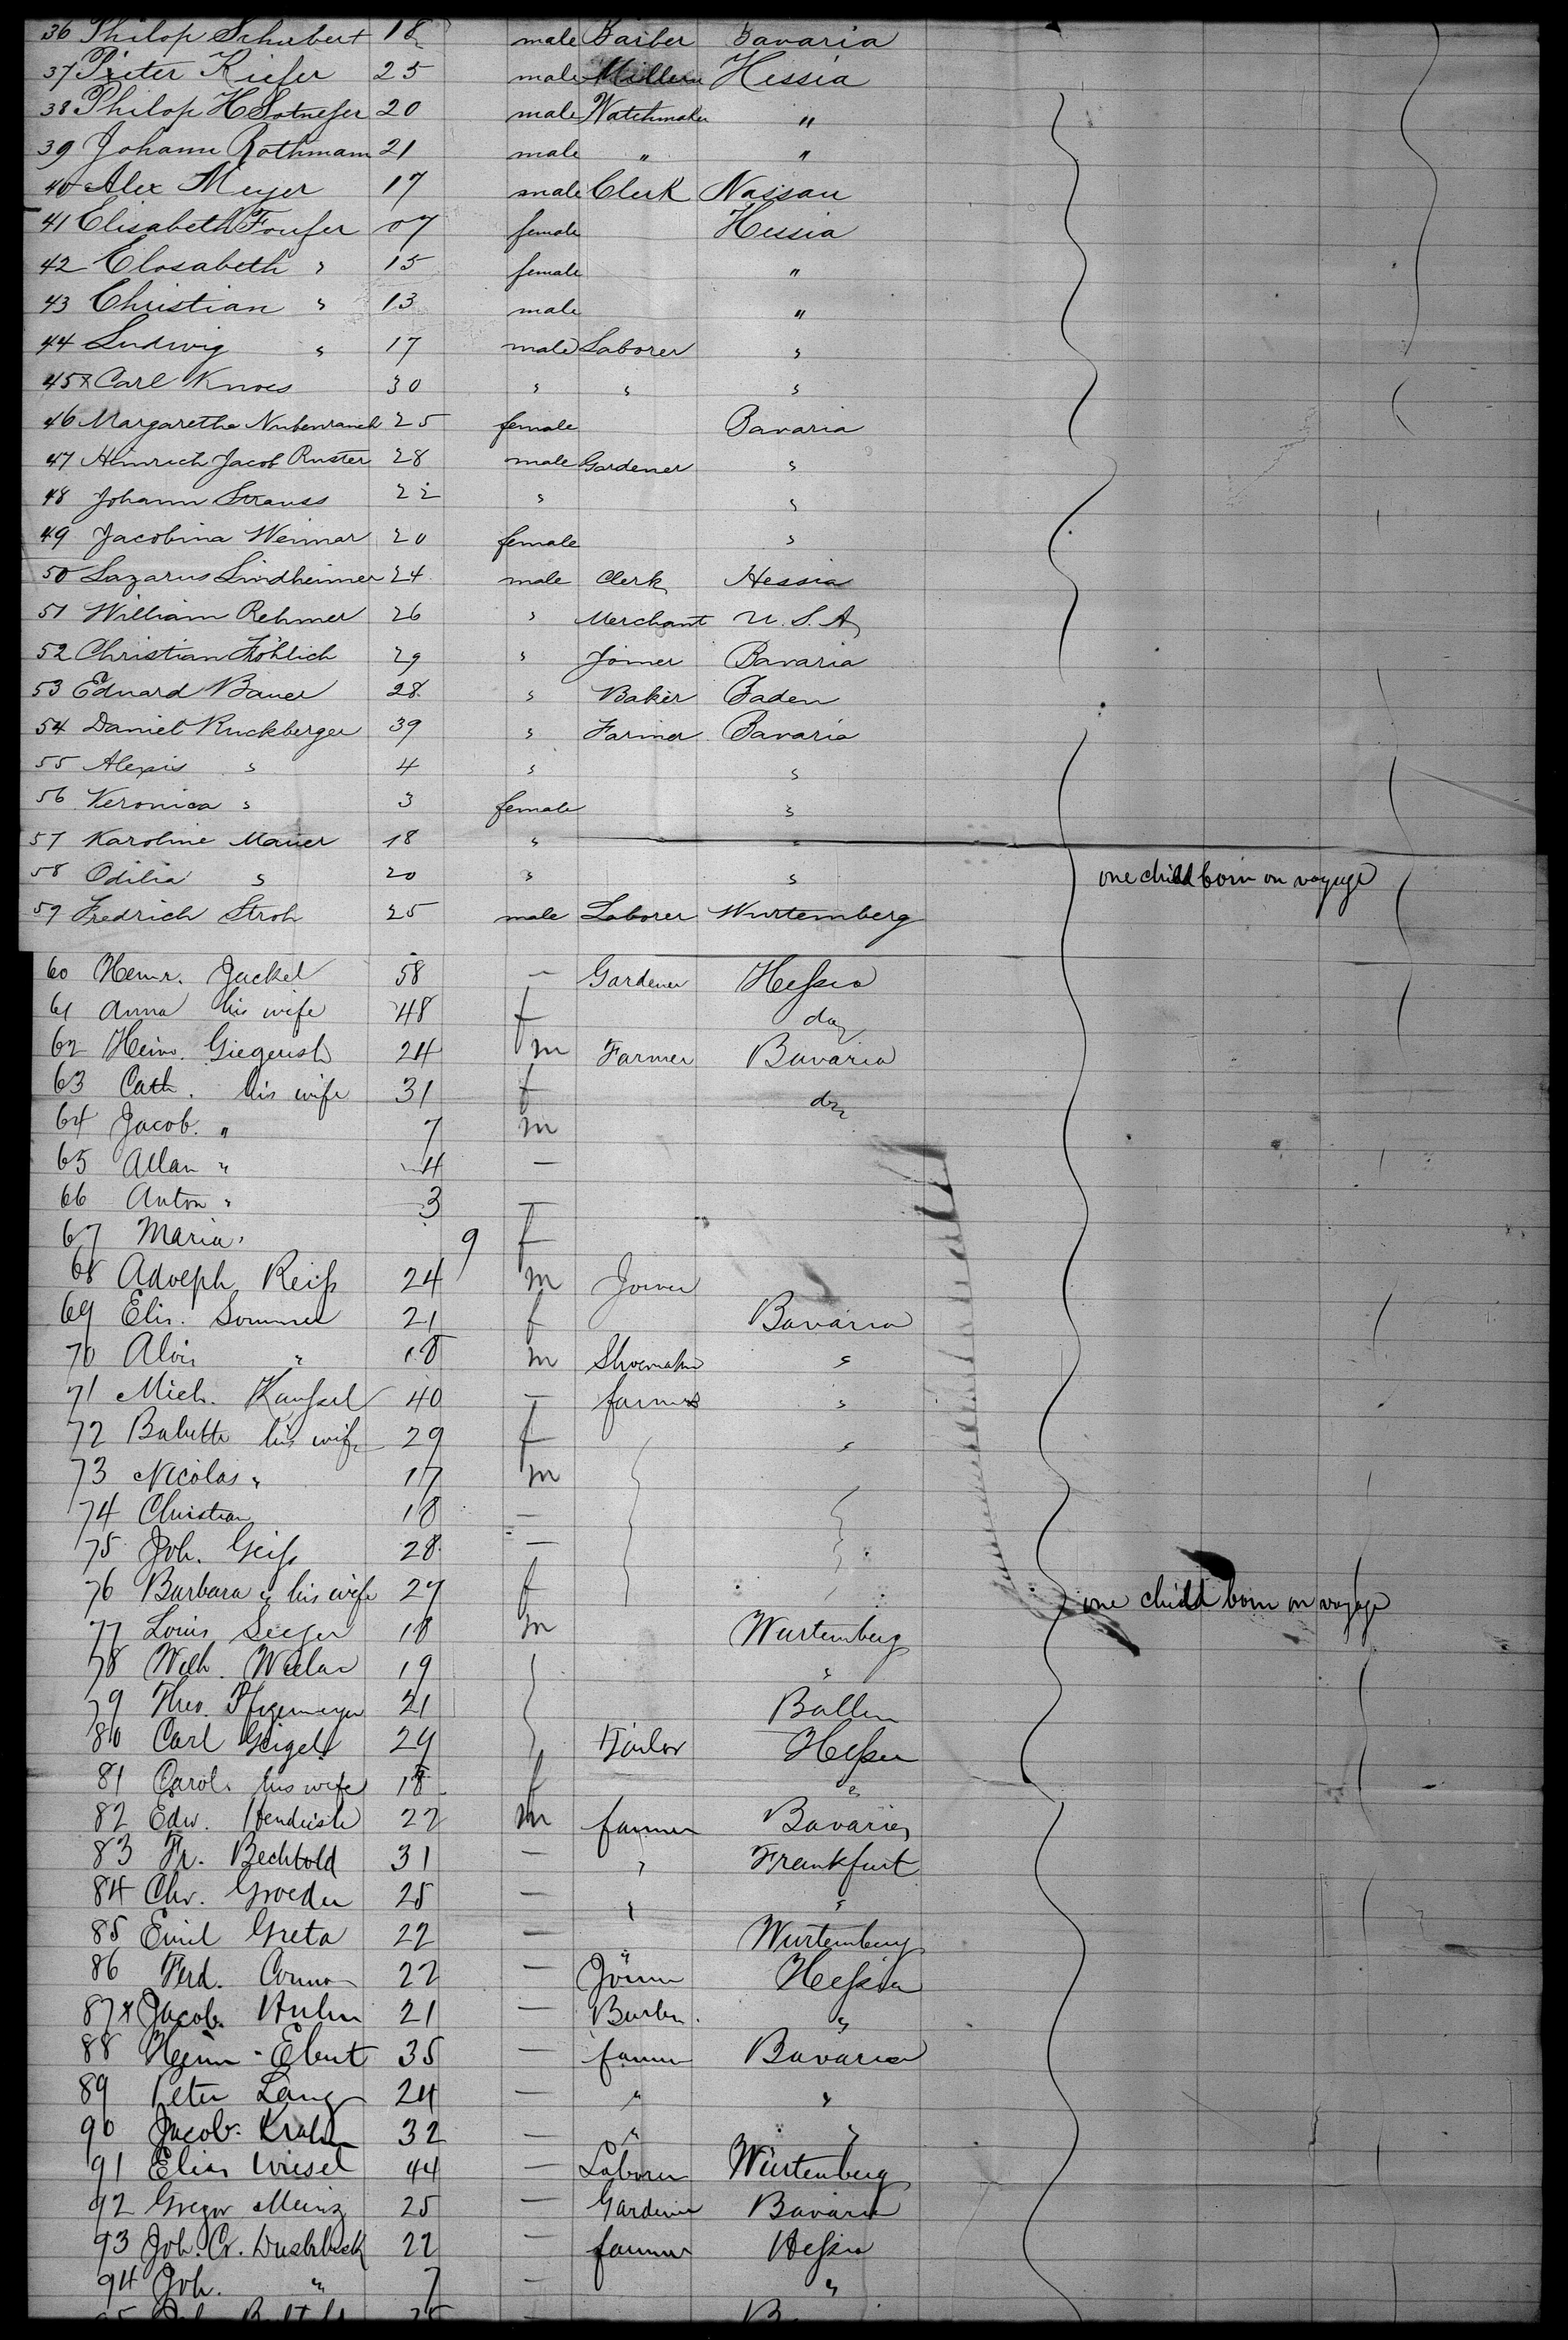 36 Philop Schubert 18 male Barber Bavaria
37 Pieter Kiefer 25 male Millern Hessia
38 Philop H 20 male Watchmaker "
39 Johann Rothmann 21 male " "
40 Alex Meyer 17 male Clerk Nassau
41 Elisabeth Foufer 07 female Hessia
42 Elosabeth " 15 female "
43 Christian " 13 male "
44 Ludwig " 17 male Laborer "
45 x Carl Knoes 30 " " "
46 Margaretha 25 female Bavaria
47 Heinrich Jacob Ruster 28 male Gardener "
48 Johann Strauss 22 " "
49 Jacobina Weimar 20 female "
50 Lazarus Lindheimer 24 male Clerk Hessia
51 William Rehmer 26 " Merchant U.S.A
52 Christian Fröhlich 29 " Joiner Bavaria
53 Eduard Bauer 28 " Baker Baden
54 Daniel Ruckberger 39 " Farmer Bavaria
55 Alexis " 4 " "
56 Veronica " 3 female "
57 Karoline Maurer 18 " "
58 Odilia " 20 " " one child born on voyage
59 Fredrich Stroh 25 male Laborer Wurtemberg
60 Heinr. Jackel 58 — Gardener Heſsia
61 Anna his wife 48 f do
62 Heinr. Giegerish 24 m Farmer Bavaria
63 Cath. his wife 31 f do
64 Jacob. " 7 m
65 Allan " 4 —
66 Anton " 3 —
67 Maria " 9 f
68 Adolph Reiſs 24 m Joiner
69 Elis. Sommer 21 f Bavaria
70 Alois " 18 m Shoemaker "
71 Mich. Kauſsel 40 — farmer "
72 Babette his wife 29 f "
73 Nicolas " 17 m
74 Christian 18 —
75 Joh. Geiſs 28 —
76 Barbara " his wife 27 f one child born on voyage
77 Louis Seeger 18 m Wurtemberg
78 Wilh. 19 "
79 Theo. 21
80 Carl Geigel 29 Tailor Heſsen
81 Carol. his wife 18 f "
82 Edw. 22 m farmer Bavaria
83 Fr. Bechtold 31 — " Frankfurt
84 Chr. Groeder 25 — " "
85 Emil Greta 22 — Wurtemberg
86 Ferd. 22 — Joiner Heſsia
87 x Jacob. 21 — "
88 Ebert 35 — farmer Bavaria
89 Peter Lang 24 — " "
90 Jacob. 32 — " "
91 Elias Wiesel 44 — Laborer Würtenberg
92 Gregor Meinz 25 — Gardener Bavaria
93 Joh. Cr. 22 — farmer Heſsia
94 Joh. " 7 — "